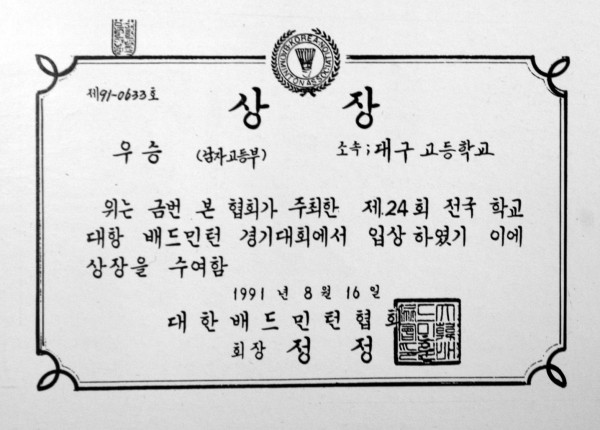 제91-0633호
상 장
우 승 (남자고등부) 소속; 대구 고등학교
위는 금번 본 협회가 주최한 제24회 전국 학교
대항 배드민턴 경기대회에서 입상하였기 이에
상장을 수여함
1991 년 8 월 16 일
대 한 배 드 민 턴 협 회
회장 정 정